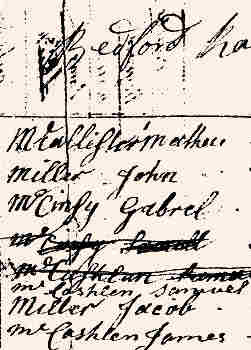 Bedford Ha
McCallister Mathew
Miller John
McCinsy Gabrel
McCashlan
Mc Cashlen Samuel
Miller Jacob
Mc Cashlen James